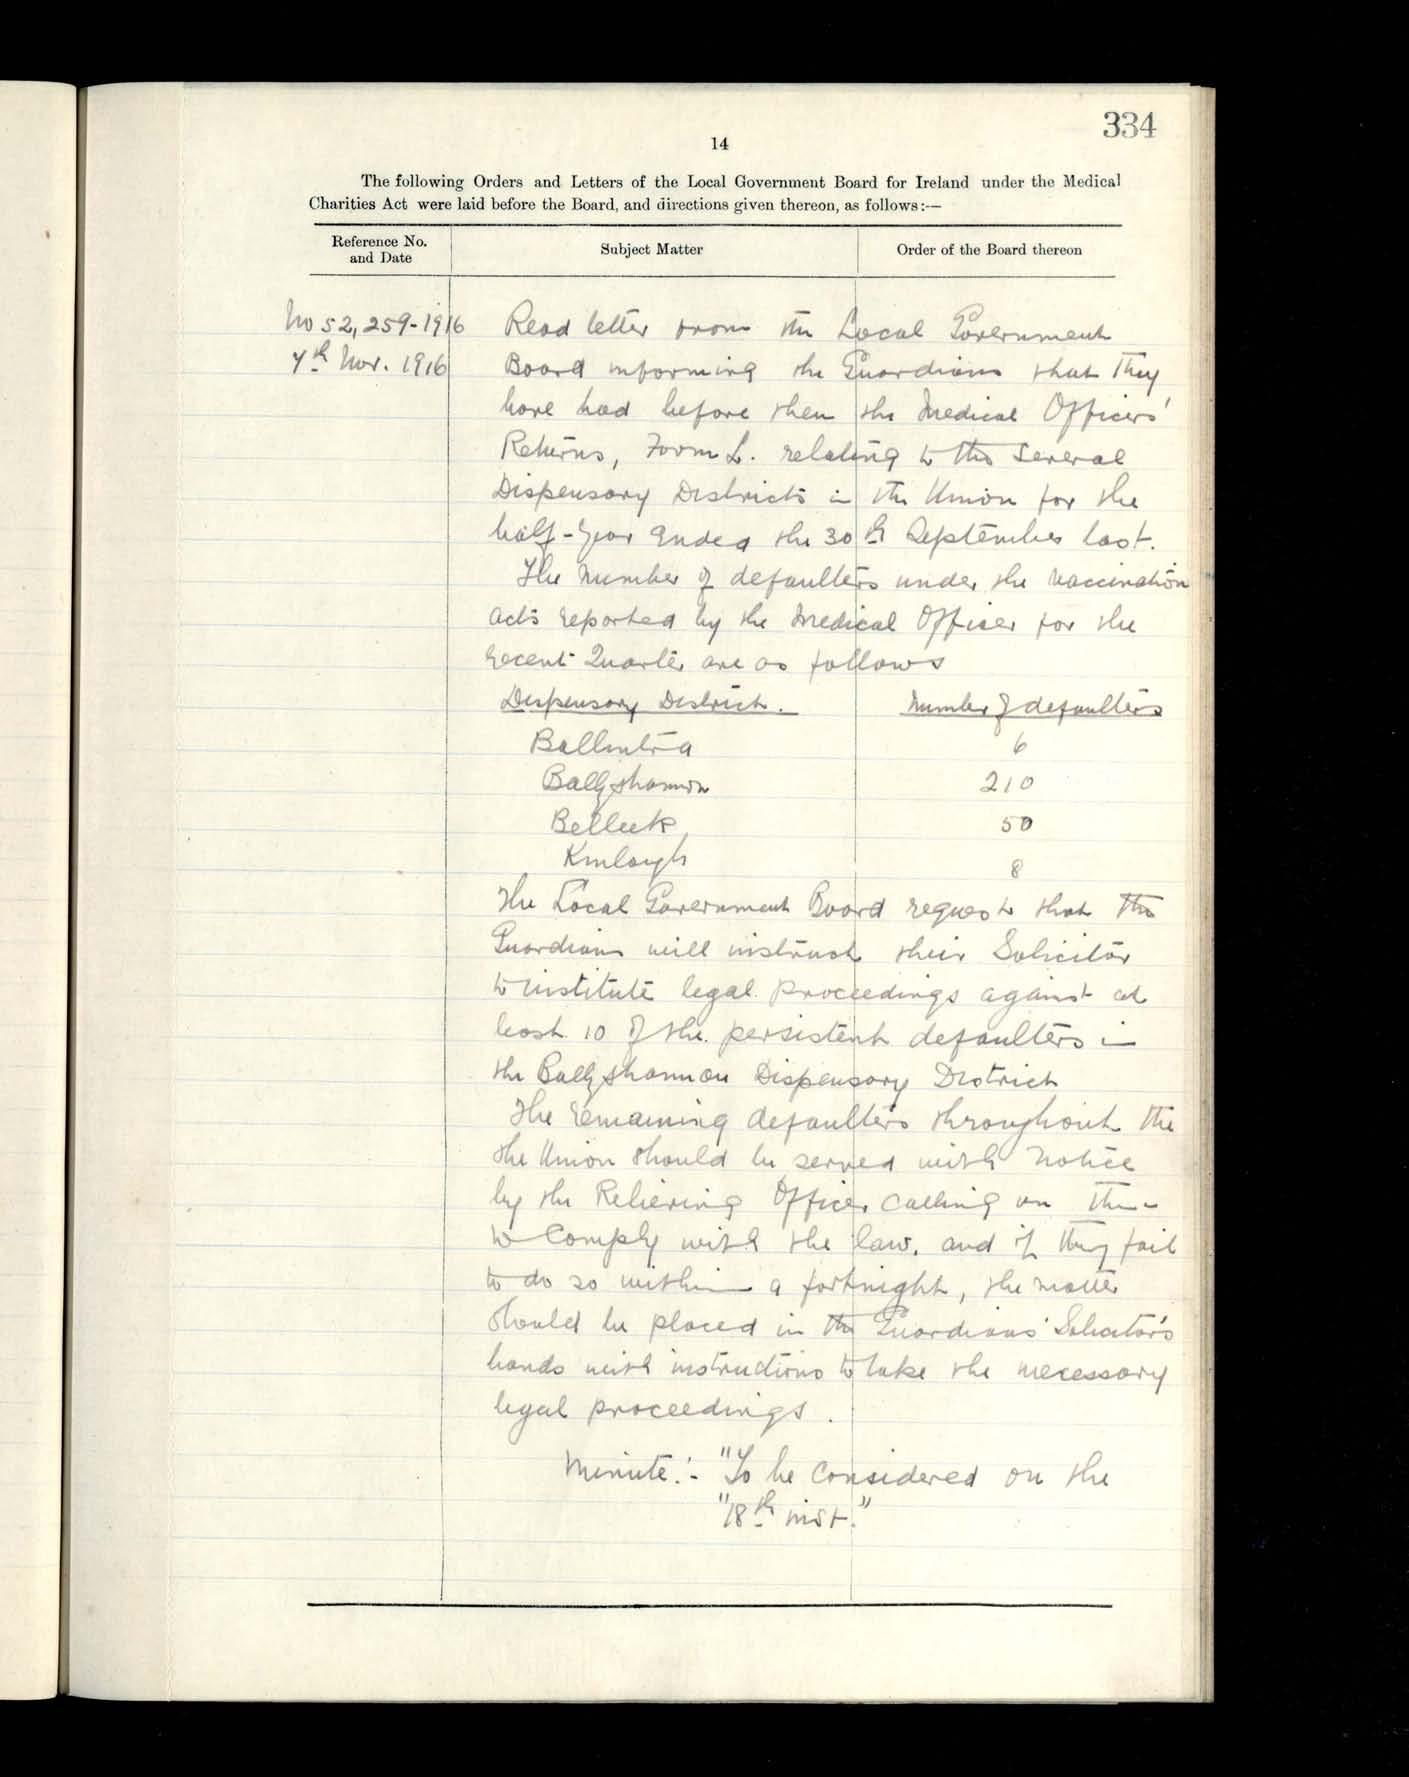 334
14
The following Orders and Letters of the Local Government Board for Ireland under the Medical
Charities Act were laid before the Board, and directions given thereon, as follows:—
Reference No.
and Date
Subject Matter
Order of the Board thereon
No 52,259-1916
7th Nov. 1916
Read letter from the Local Government
Board informing the Guardians that they
have had before them the Medical Officers'
Returns, Form L. relating to the several
Dispensary Districts in the Union for the
half-year ended the 30th September last.
The number of defaulters under the Vaccination
acts reported by the Medical Officer for the
recent Quarter are as follows
Dispensary District.    Number of defaulters
Ballintra    6
Ballyshannon    210
Belleek    50
Kinlough    8
The Local Government Board request that the
Guardians will instruct their Solicitor
to institute legal proceedings against at
least 10 of the persistent defaulters in
the Ballyshannon Dispensary District
The remaining defaulters throughout the
the Union should be served with notice
by the Relieving Officer calling on them
to comply with the law, and if they fail
to do so within a fortnight, the matter
should be placed in the Guardians' Solicitor's
hands with instructions to take the necessary
legal proceedings.
Minute:- "To be considered on the
"18th inst."